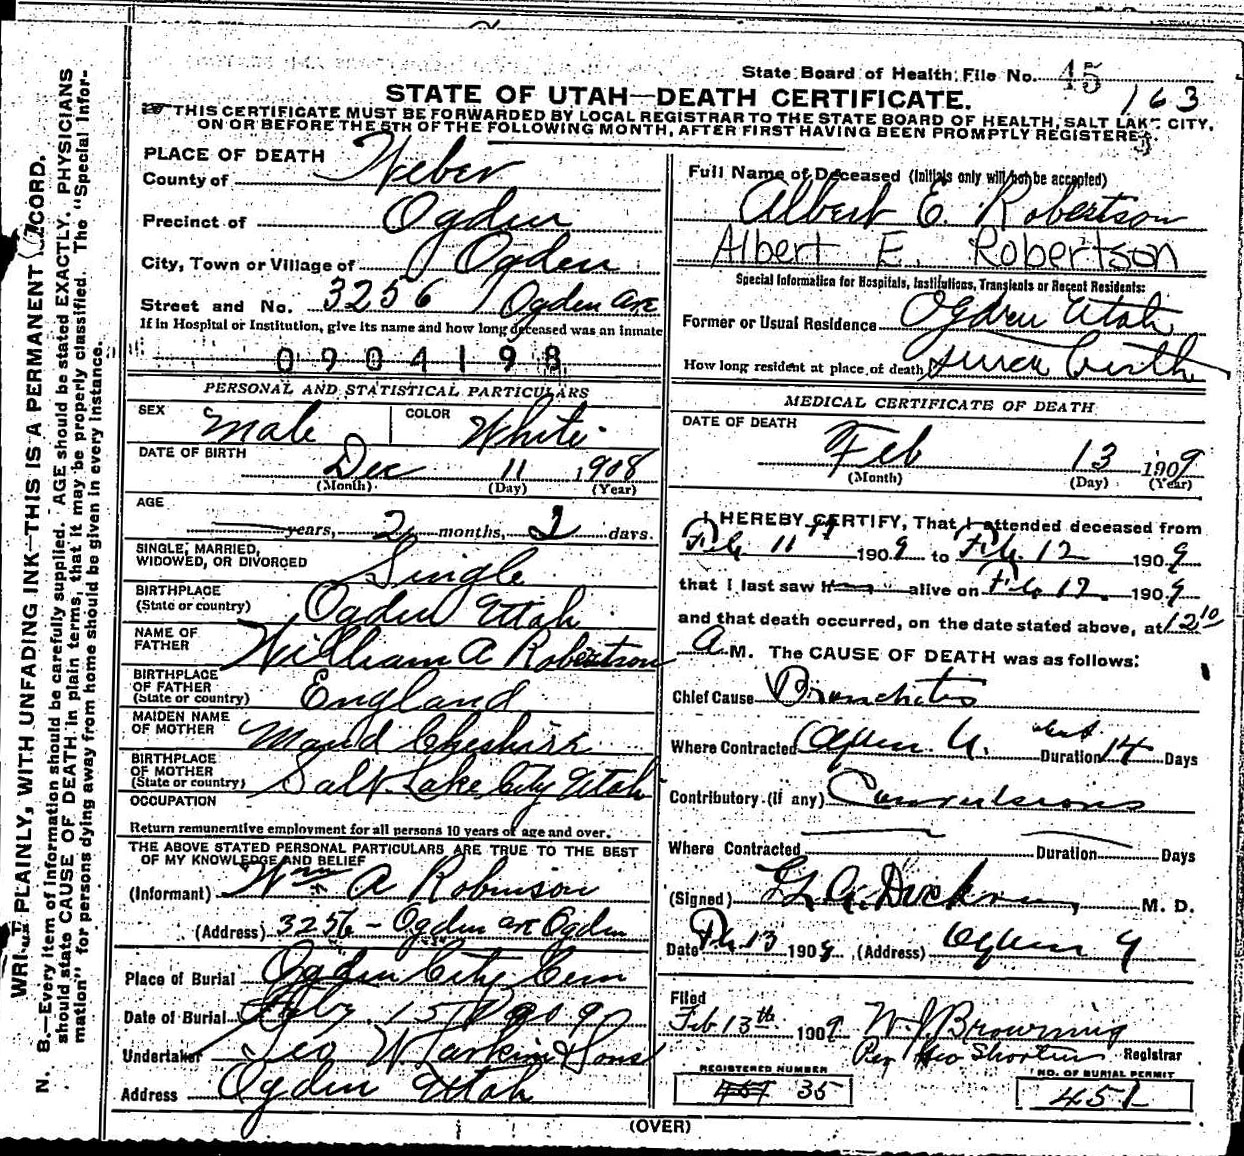 State Board of Health File No. 45
163
STATE OF UTAH—DEATH CERTIFICATE.
THIS CERTIFICATE MUST BE FORWARDED BY LOCAL REGISTRAR TO THE STATE BOARD OF HEALTH, SALT LAKE CITY,
ON OR BEFORE THE 5TH OF THE FOLLOWING MONTH, AFTER FIRST HAVING BEEN PROMPTLY REGISTERED.
WRITE PLAINLY, WITH UNFADING INK—THIS IS A PERMANENT RECORD.
N. B.—Every item of information should be carefully supplied. AGE should be stated EXACTLY. PHYSICIANS
should state CAUSE OF DEATH in plain terms, that it may be properly classified. The "Special Infor-
mation" for persons dying away from home should be given in every instance.
PLACE OF DEATH
County of Weber
Precinct of Ogden
City, Town or Village of Ogden
Street and No. 3256 Ogden Ave
If in Hospital or Institution, give its name and how long deceased was an inmate
0904198
PERSONAL AND STATISTICAL PARTICULARS
SEX Male COLOR White
DATE OF BIRTH Dec 11 1908
(Month) (Day) (Year)
AGE
years, 2 months, 2 days.
SINGLE, MARRIED,
WIDOWED, OR DIVORCED Single
BIRTHPLACE
(State or country) Ogden Utah
NAME OF
FATHER William A Robertson
BIRTHPLACE
OF FATHER
(State or country) England
MAIDEN NAME
OF MOTHER Maud Cheshire
BIRTHPLACE
OF MOTHER
(State or country) Salt Lake City Utah
OCCUPATION
Return remunerative employment for all persons 10 years of age and over.
THE ABOVE STATED PERSONAL PARTICULARS ARE TRUE TO THE BEST
OF MY KNOWLEDGE AND BELIEF
(Informant) Wm A Robinson
(Address) 3256 - Ogden ave Ogden
Place of Burial Ogden City Cem
Date of Burial Feby. 15 1909
Undertaker Geo W Larkin & Sons
Address Ogden Utah
Full Name of Deceased (Initials only will not be accepted)
Albert E. Robertson
Albert E. Robertson
Special Information for Hospitals, Institutions, Transients or Recent Residents:
Former or Usual Residence Ogden Utah
How long resident at place of death since birth
MEDICAL CERTIFICATE OF DEATH
DATE OF DEATH
Feb 13 1909
(Month) (Day) (Year)
I HEREBY CERTIFY, That I attended deceased from
Feb. 11th 1909 to Feb. 12 1909
that I last saw him alive on Feb. 12. 1909
and that death occurred, on the date stated above, at 12 10
A M. The CAUSE OF DEATH was as follows:
Chief Cause Bronchitis
Where Contracted Ogden U. Duration 14 Days
Contributory (if any) Convulsions
Where Contracted Duration Days
(Signed) M. D.
Date Feb 13 1909 (Address) Ogden
Filed
Feb 13th 1909 W. J. Browning
Per Geo Shorten Registrar
REGISTERED NUMBER
35
NO. OF BURIAL PERMIT
451
(OVER)